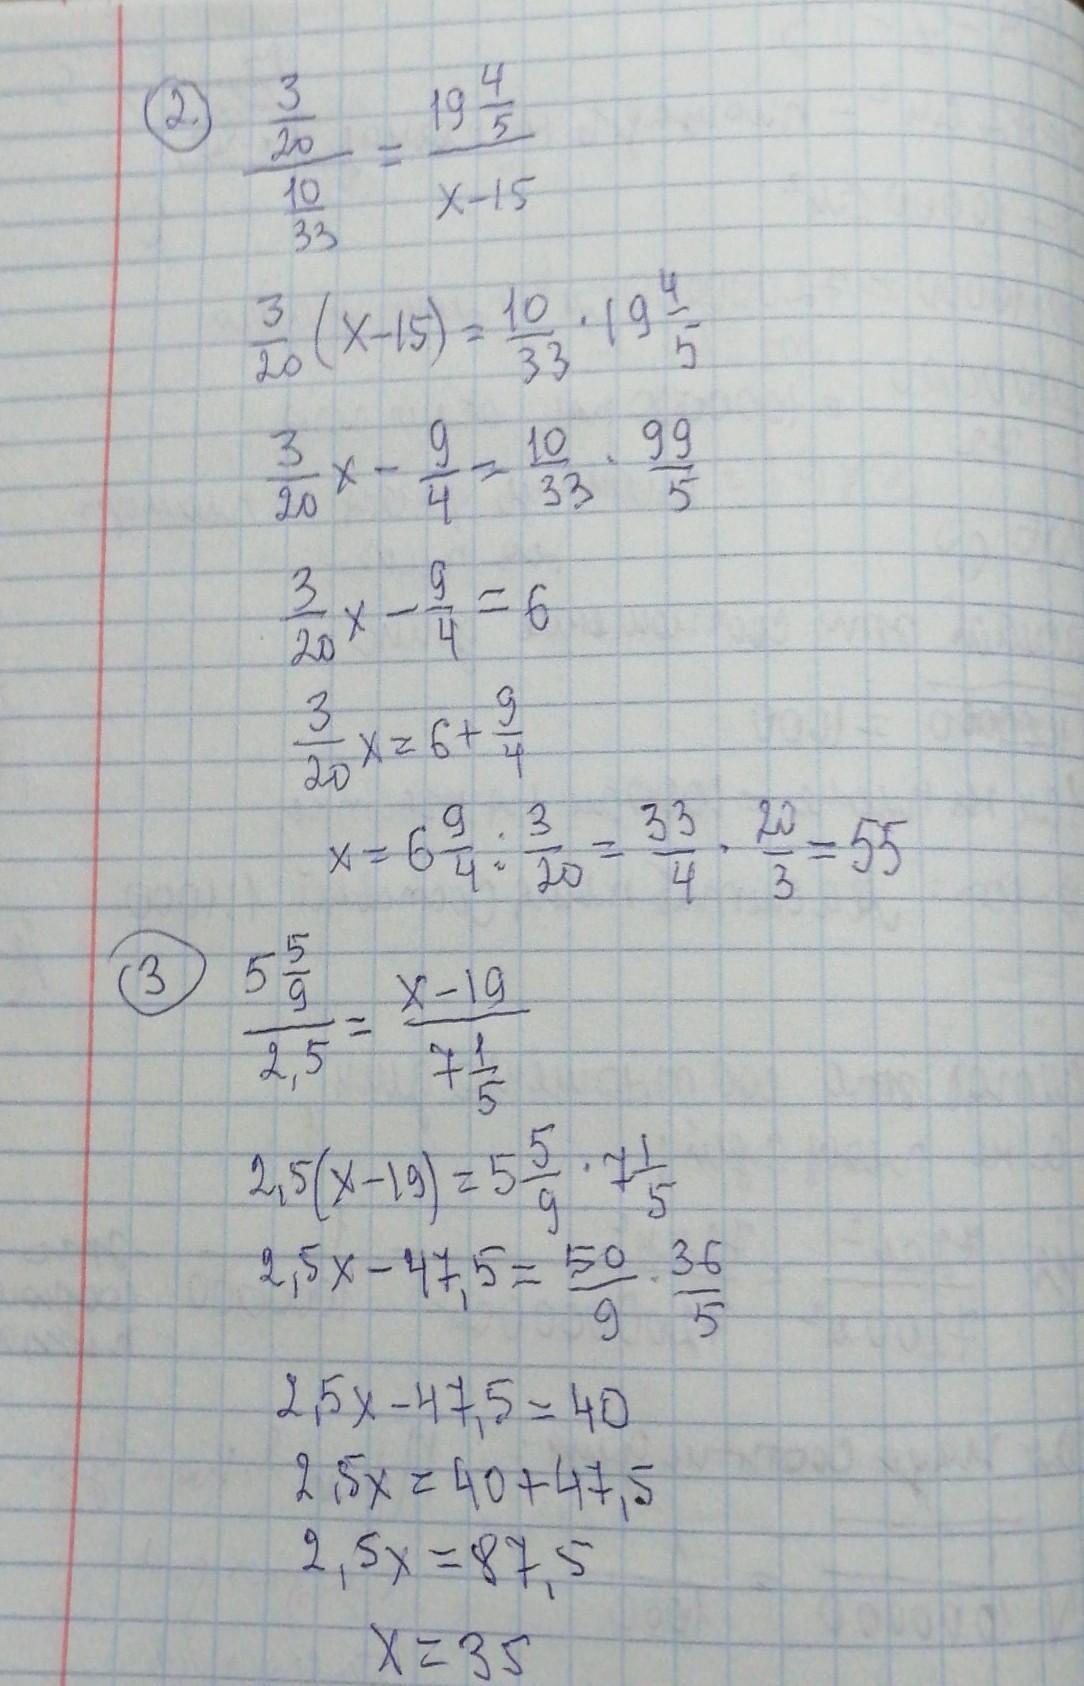 2. 3/20 / 10/33 = 19 4/5 / x-15
3/20 (x-15) = 10/33 · 19 4/5
3/20 x - 9/4 = 10/33 · 99/5
3/20 x - 9/4 = 6
3/20 x = 6 + 9/4
x = 6 9/4 : 3/20 = 33/4 · 20/3 = 55
3 5 5/9 / 2,5 = x-19 / 7 1/5
2,5(x-19) = 5 5/9 · 7 1/5
2,5x - 47,5 = 50/9 · 36/5
2,5x - 47,5 = 40
2,5x = 40 + 47,5
2,5x = 87,5
x = 35